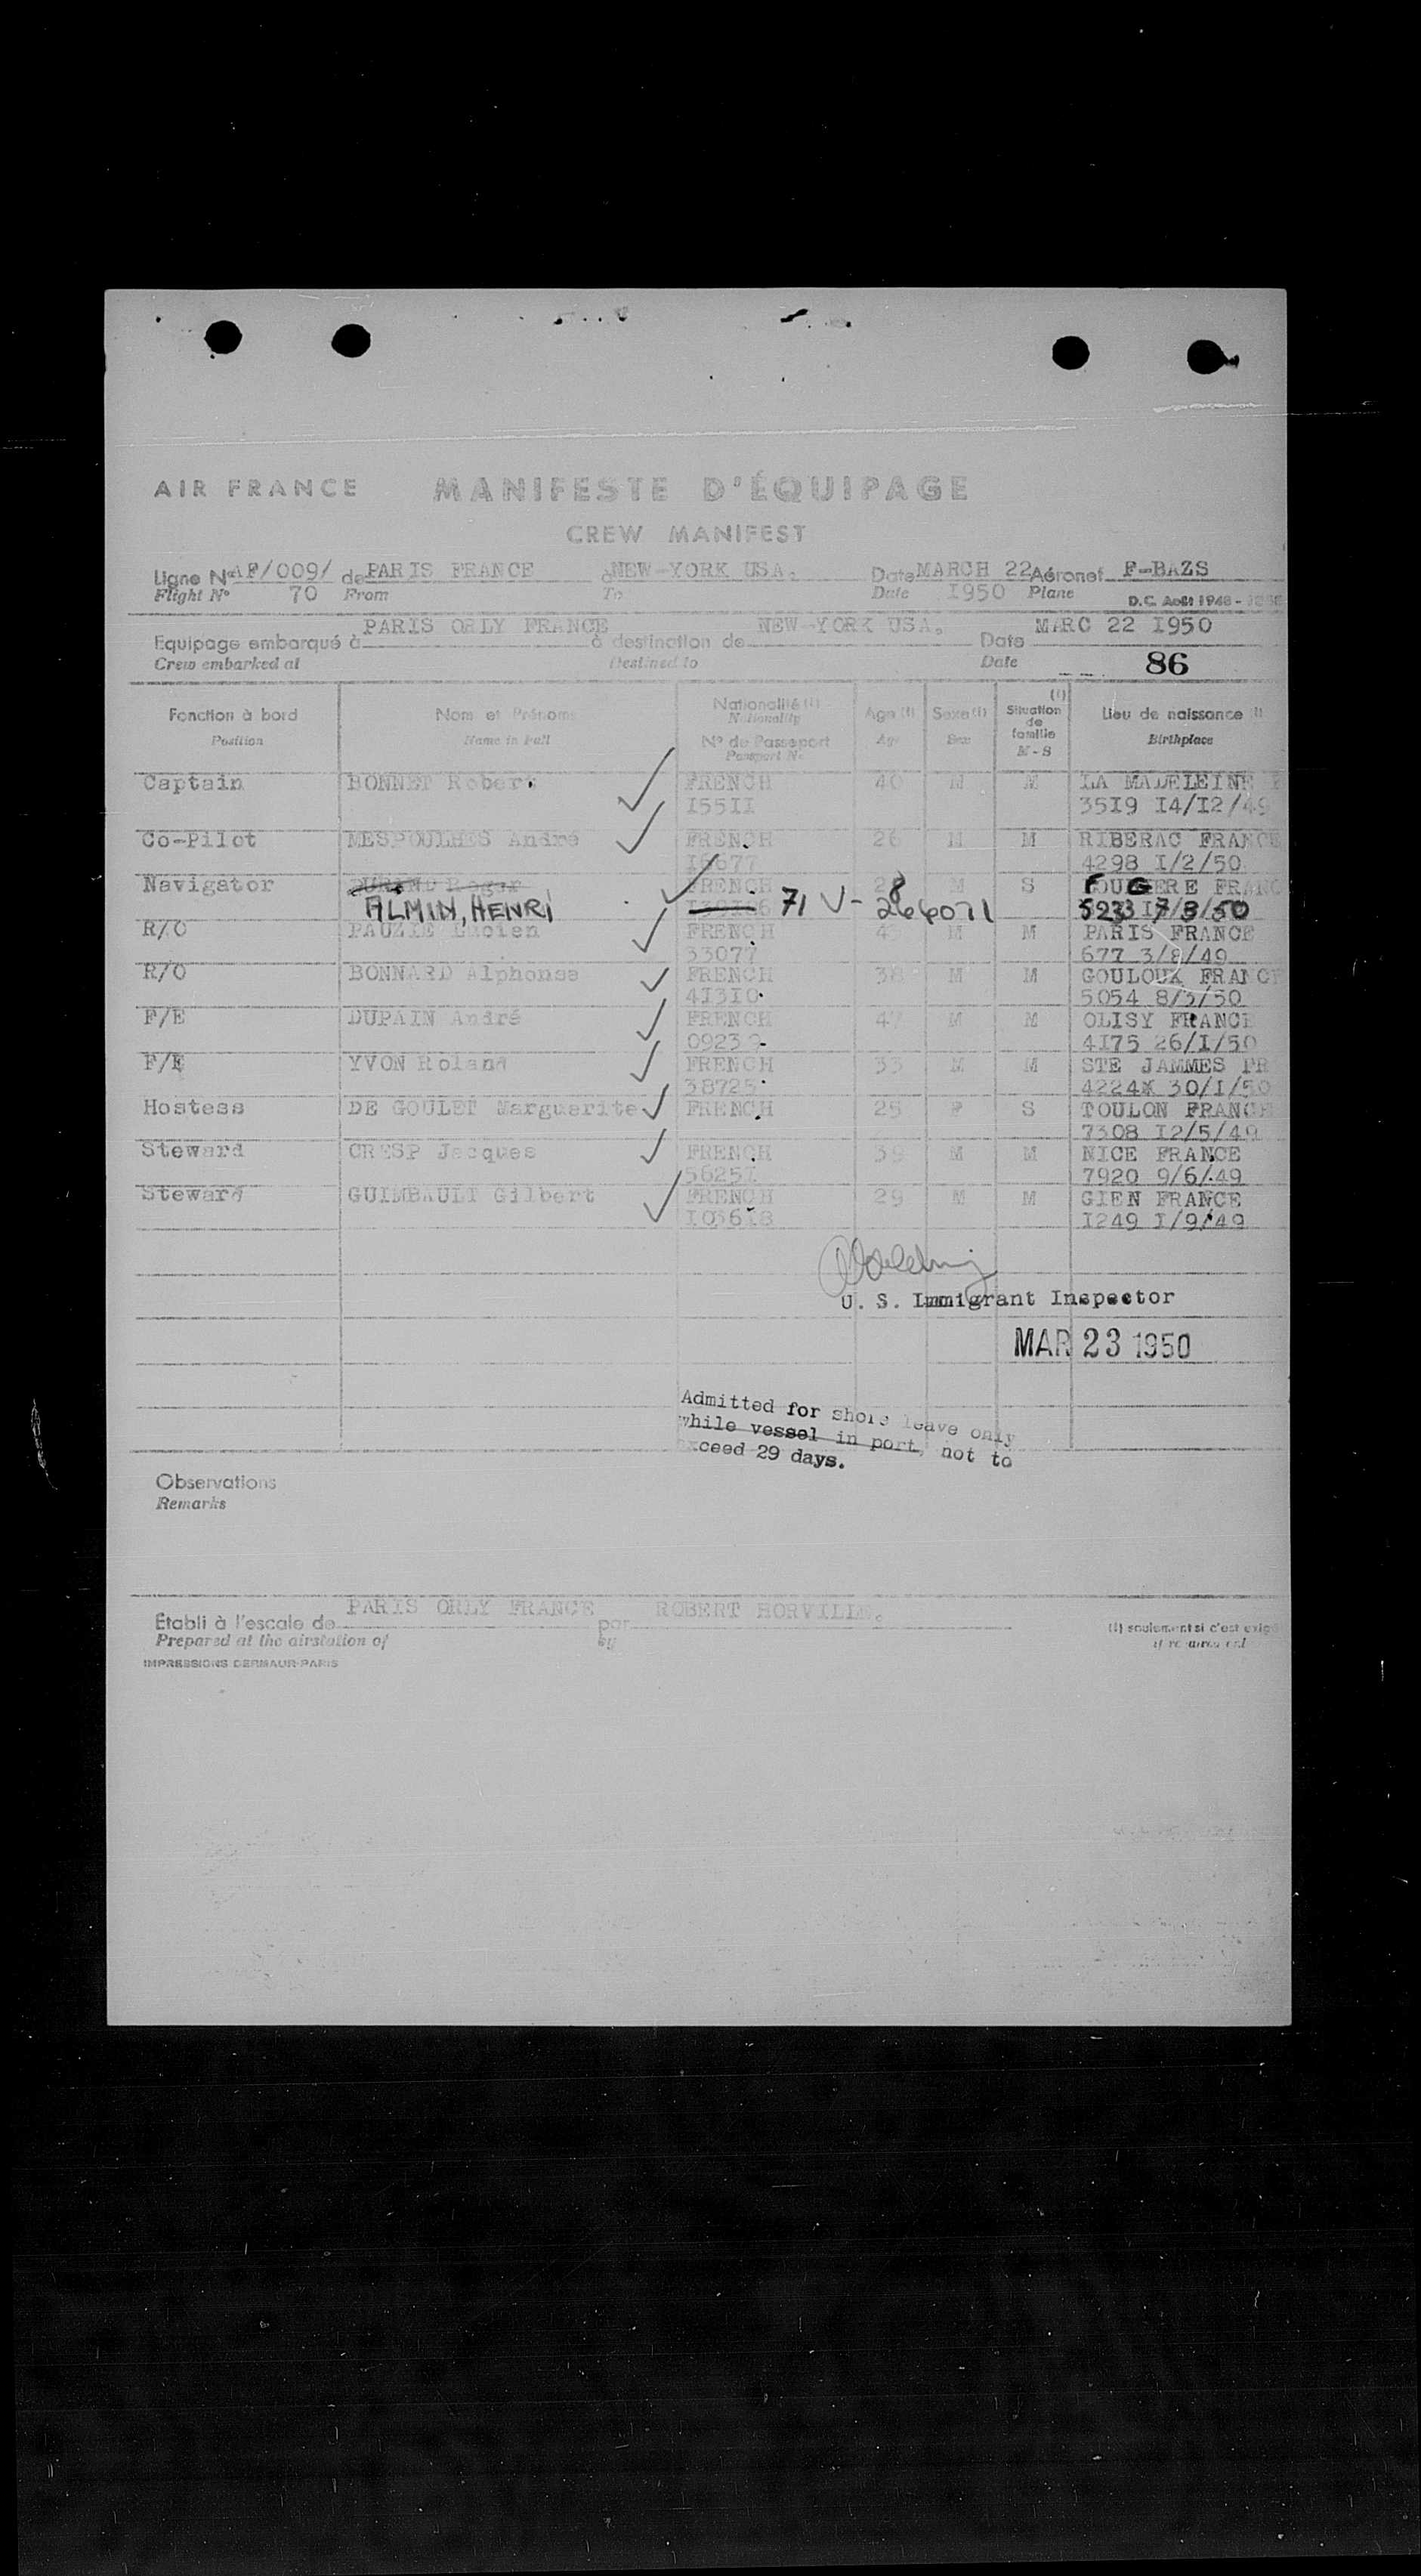 AIR FRANCE MANIFESTE D'ÉQUIPAGE
CREW MANIFEST
Ligne No AF/009/ de PARIS FRANCE à NEW-YORK USA. Date MARCH 22 Aéronef F-BAZS
Flight No 70 From To Date 1950 Plane D.C. Août 1948 -
Equipage embarqué à PARIS ORLY FRANCE à destination de NEW-YORK USA. Date MARC 22 1950
Crew embarked at Destined to Date 86
Fonction à bord Nom et Prénoms Nationalité (1) Age (1) Sexe (1) (1) Situation de famille Lieu de naissance (1)
Position Name in Full Nationality Age Sex M - S Birthplace
No de Passeport
Passport No
Captain BONNET Robert FRENCH 40 M M LA MADELEINE
I55II 35I9 I4/I2/49
Co-Pilot MESPOULHES André FRENCH 26 M M RIBERAC FRANCE
I6677 4298 I/2/50
Navigator Roger FRENCH 8 M S FOUGERE FRANC
ALMIN, HENRI 71 V- 266071
R/O PAUZIE Lucien FRENCH M M PARIS FRANCE
33077 677 3/8/49
R/O BONNARD Alphonse FRENCH 38 M M GOULOUX FRANCE
4I3I0 5054 8/3/50
F/E DUPAIN André FRENCH 47 M M OLISY FRANCE
0923 4I75 26/I/50
F/E YVON Roland FRENCH 33 M M STE JAMMES FR
38725 4224 30/I/50
Hostess DE GOULET Marguerite FRENCH 25 F S TOULON FRANCE
7308 I2/5/49
Steward CRESP Jacques FRENCH 39 M M NICE FRANCE
5625I 7920 9/6/49
Steward GUIMBAULT Gilbert FRENCH 29 M M GIEN FRANCE
I036I8 I249 I/9/49
U. S. Immigrant Inspector
MAR 23 1950
Admitted for shore leave only
while vessel in port, not to
exceed 29 days.
Observations
Remarks
Établi à l'escale de PARIS ORLY FRANCE par ROBERT HORVILLE.
Prepared at the airstation of by
(1) seulement si c'est exigé
if required
IMPRESSIONS DERMAUR-PARIS